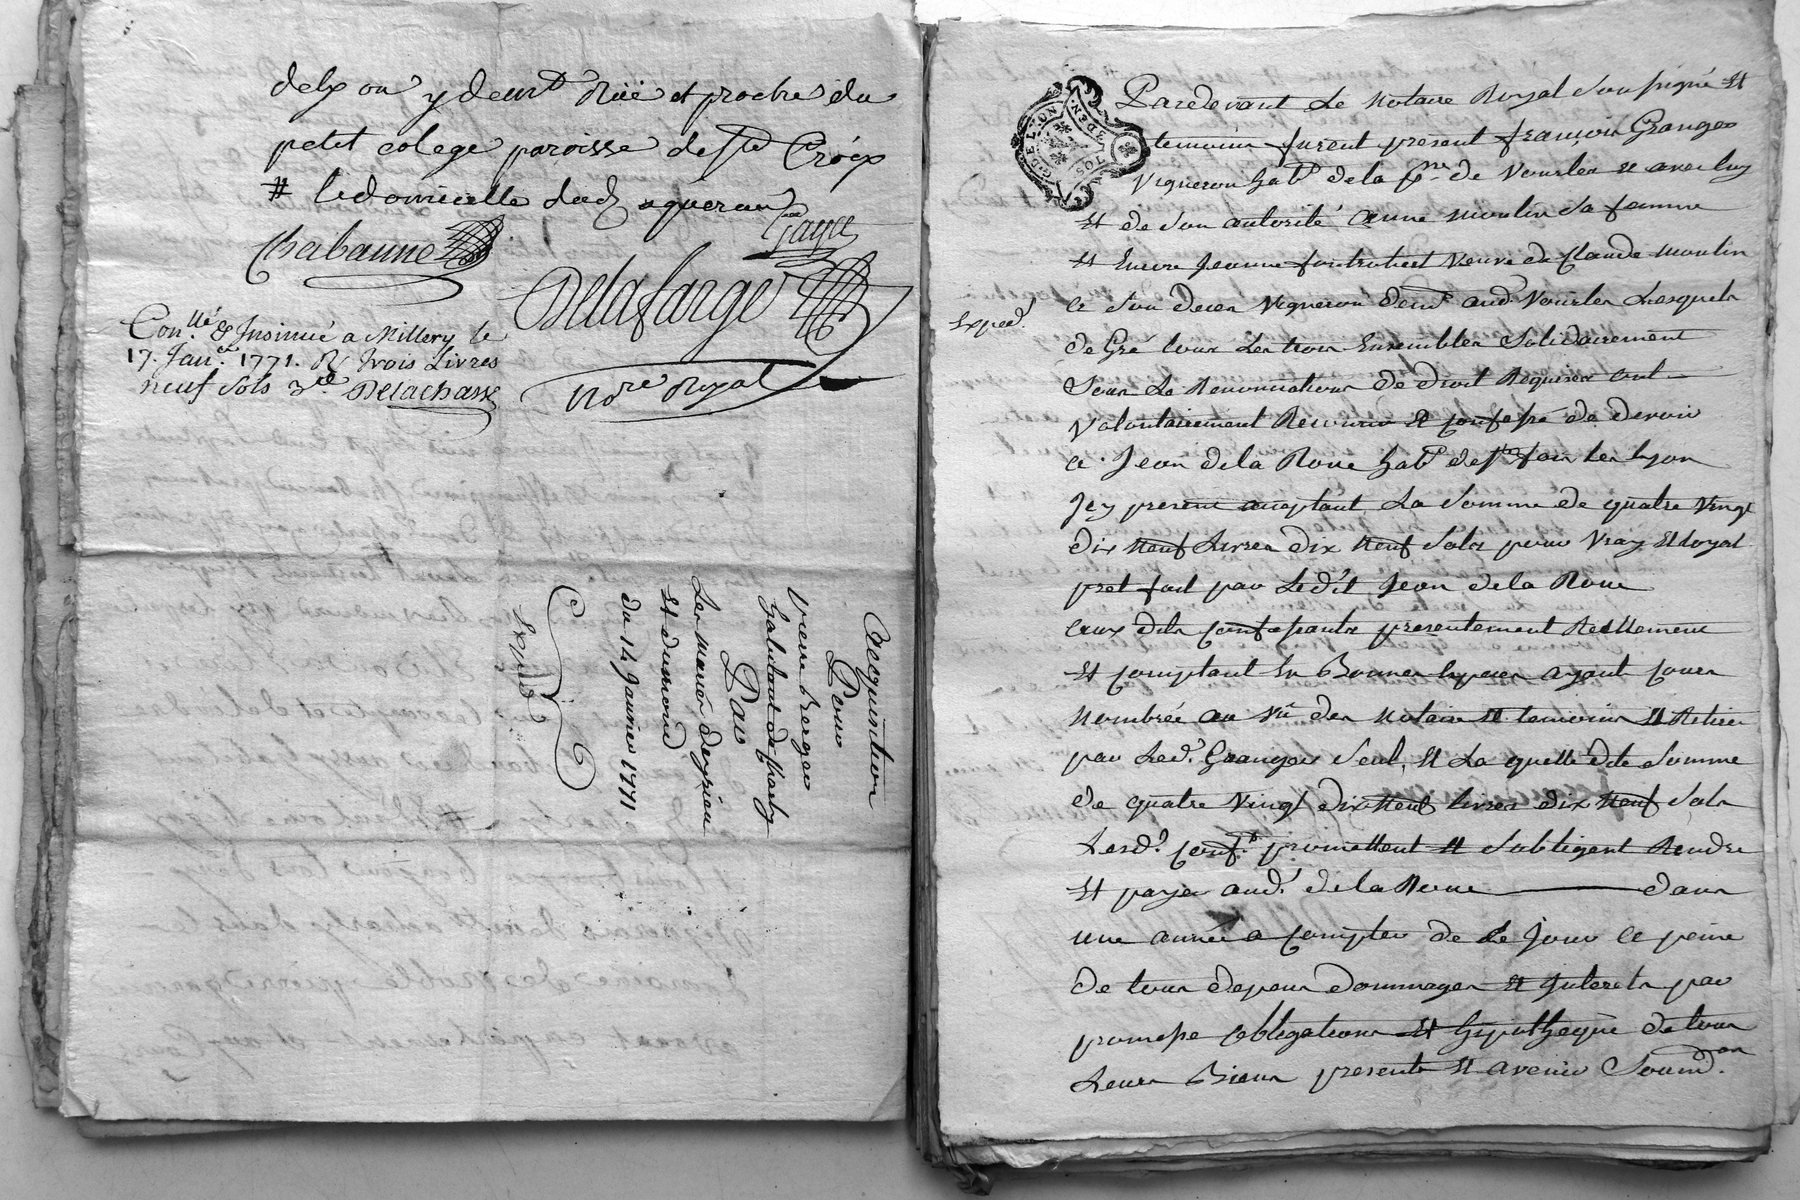 delyon y demt Rüe et proche du
petit colege paroisse de Ste Croix
# le domicille dud aquereur
Chabanne
Gayet
Delafarge
Nore Royal
Conllé & Insinué a Millery le
17. Janer 1771. R/ trois Livres
neuf sols 3 Delachasse
Acquisition
Pour
pierre Bergeu
habitant de Charly
Par
Les mariés deyrieu
Et dumond
du 14 Janvier 1771
Expéd
Expéd.
G. DE LYON
SOLS DEN
Pardevant Le Notaire Royal Soussigné Et
temoins furent present françois Granges
Vigneron habt de la psse de Vourles Et avec luy
Et de Son autorité anne moulin Sa femme
Et Encore Jeanne Veuve de Claude moulin
a Son deces Vigneron demt aud. Vourles Lesquels
de Gré tous Les trois Ensembles Solidairement
Sous Les Renonciations de droit Requises ont
Volontairement Reconnu Et confessé de devoir
a Jean de la Roue habt de Ste foix les lyon
Jcy present acceptant La Somme de quatre Vingt
dix Neuf Livres dix Neuf Sols pour Vray Et loyal
pret fait par Ledit Jean de la Roue
aux dits confessants presentement Reellement
Et comptant En Bonnes Especes ayant cours
Nombrée au Vû des Notaire Et temoins Et Retirée
par Led. Granges Seul, Et La quelle dte Somme
de quatre Vingt dix Neuf livres dix Neuf Sols
Lesd. confts promettent Et S'obligent Rendre
Et payer aud. de la Roue dans
une année a compter de Ce Jour a peine
de tous depens dommages Et Interets par
promesse obligations Et hypotheque de tous
Leurs Biens presents Et avenir Soumdon